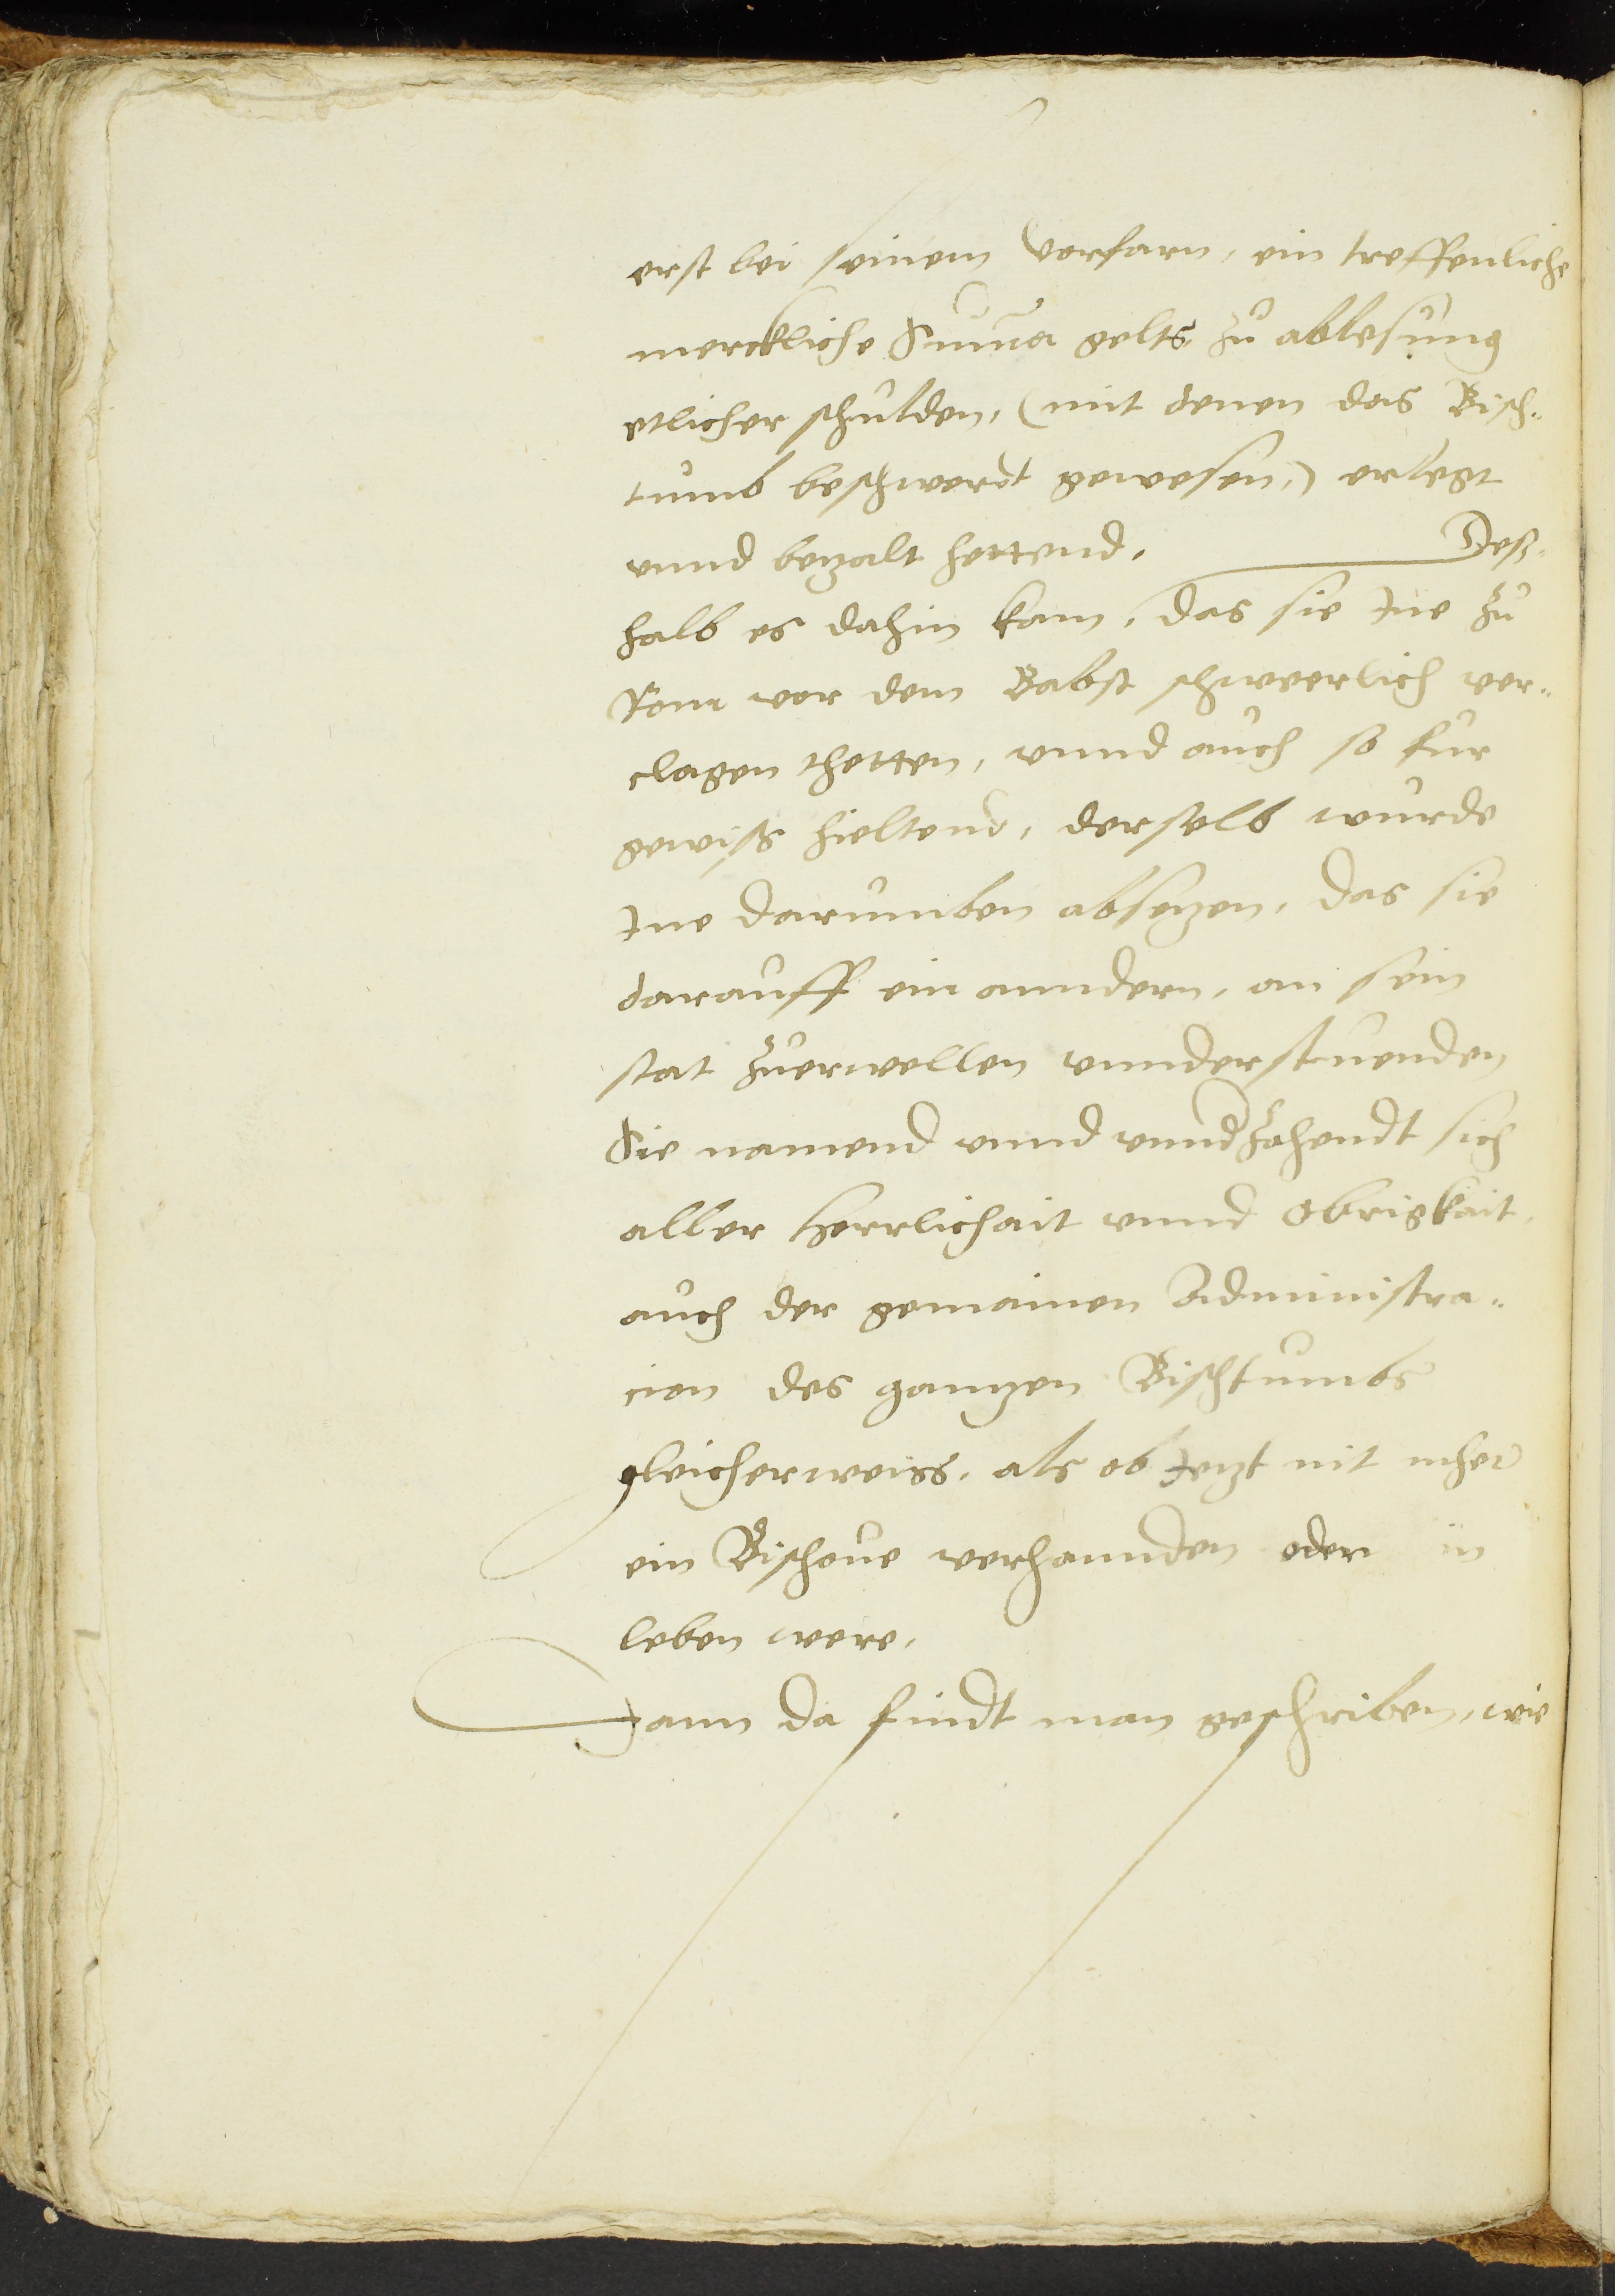 erst bei seinem vorfarn, ein treffenliche
merckliche Summa gelts zu ablesung
etlicher schulden, (mit denen das Bisch-
tumb beschwerdt gewesen,) erlegt
unnd bezalt hettend. Deß-
halb es dahin kam, das sie Ine zu
Rom vor dem Babst schweerlich ver-
clagen thetten, unnd auch so fur
gewiß hieltend, derselb wurde
Ine darumben absezen, das sie
darauff ein anndern, an sein
stat zuerwellen unnderstuenden
Sie namend unnd unndzohendt sich
aller Herrlichait unnd Obrigkait,
auch der gemainen Administra-
cion des ganzen Bischtumbs
gleicherweiss, als ob Jezt nit mher
ein Bischove verhannden oder in
leben were,
Dann da findt man geschriben, wie